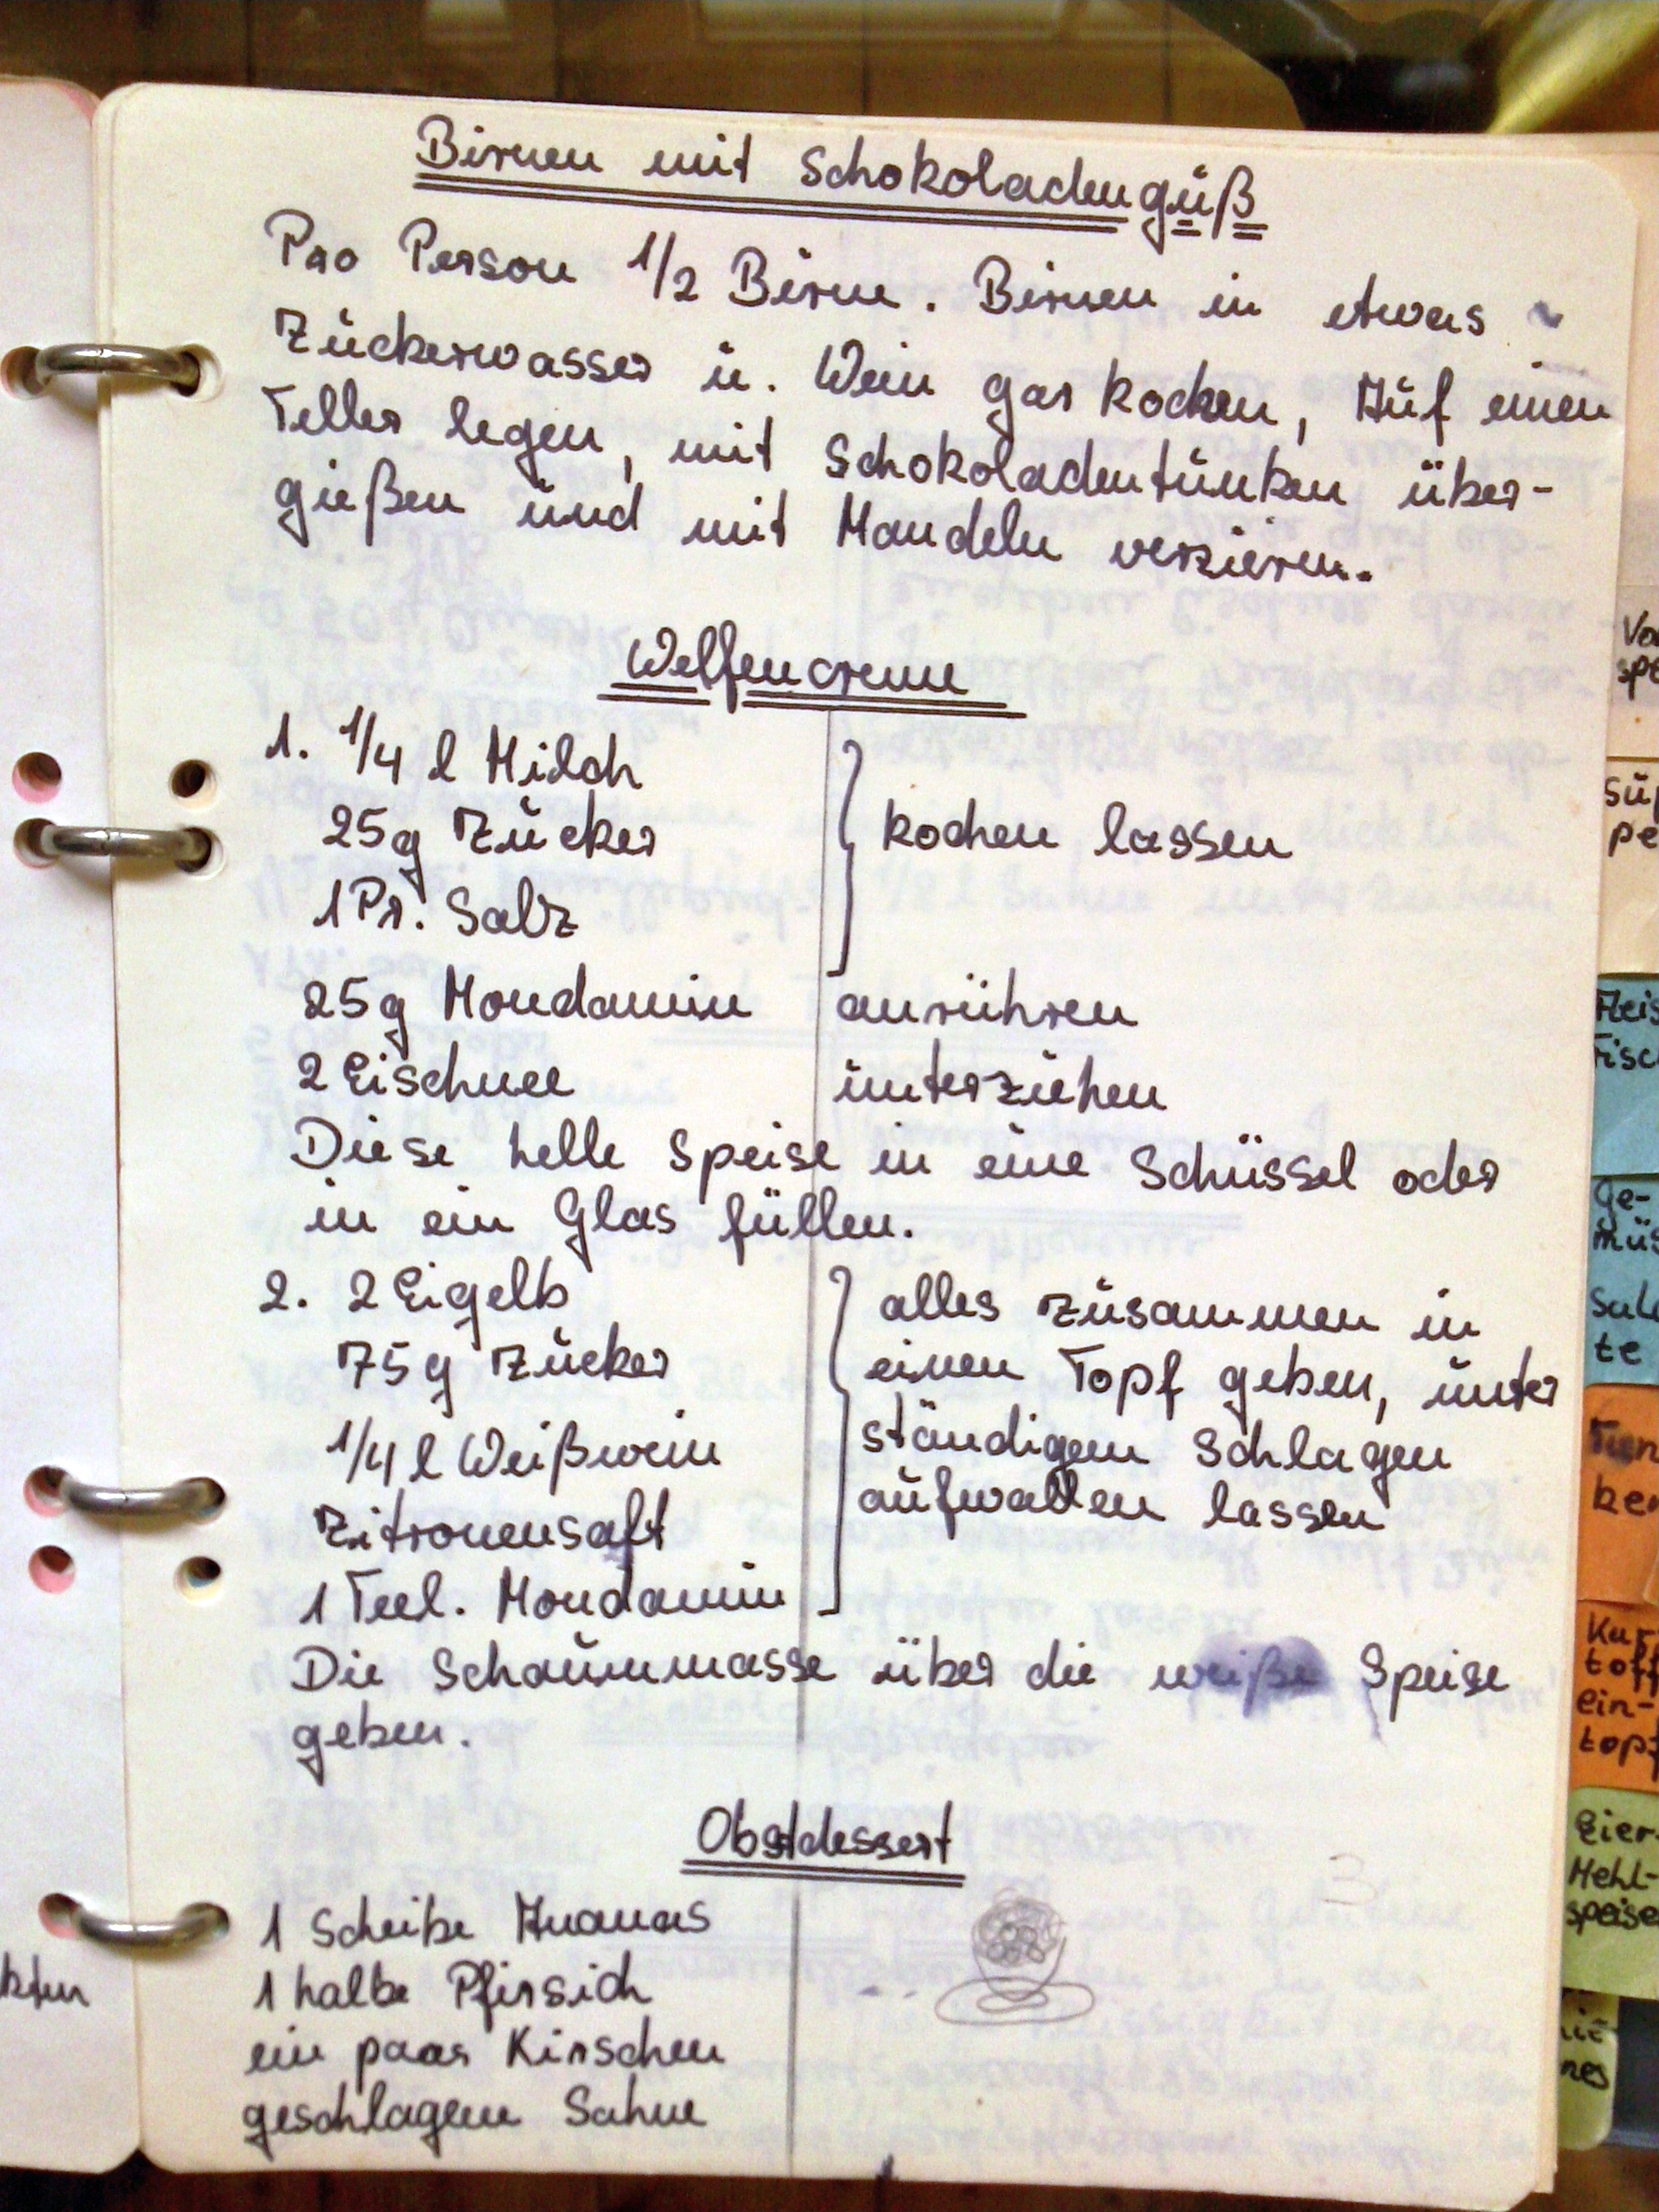 Birnen mit Schokoladenguß
Pro Person 1/2 Birne. Birnen in etwas
Zuckerwasser u. Wein gar kochen, Auf einen
Teller legen, mit Schokoladentunken über-
gießen und mit Mandeln verzieren.
Welfencreme
1. 1/4 l Milch
25g Zucker
1 Pr. Salz
kochen lassen
25g Mondamin anrühren
2 Eischnee unterziehen
Diese helle Speise in eine Schüssel oder
in ein Glas füllen.
2. 2 Eigelb
75g Zucker
1/4 l Weißwein
Zitronensaft
1 Teel. Mondamin
alles zusammen in
einen Topf geben, unter
ständigem Schlagen
aufwallen lassen
Die Schaummasse über die weiße Speise
geben.
Obstdessert
1 Scheibe Ananas
1 halbe Pfirsich
ein paar Kirschen
geschlagene Sahne
kten
Vo
spe
Sup
pe
Fleis
Fisc
Ge-
müs
Sala
te
ker
Kar-
toff
ein-
topf
Eier-
Mehl-
speise